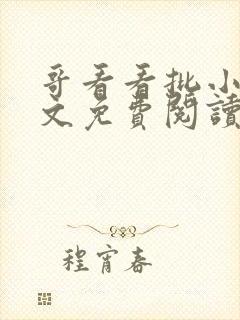 哥看看批小
文免費閱讀
程宵春